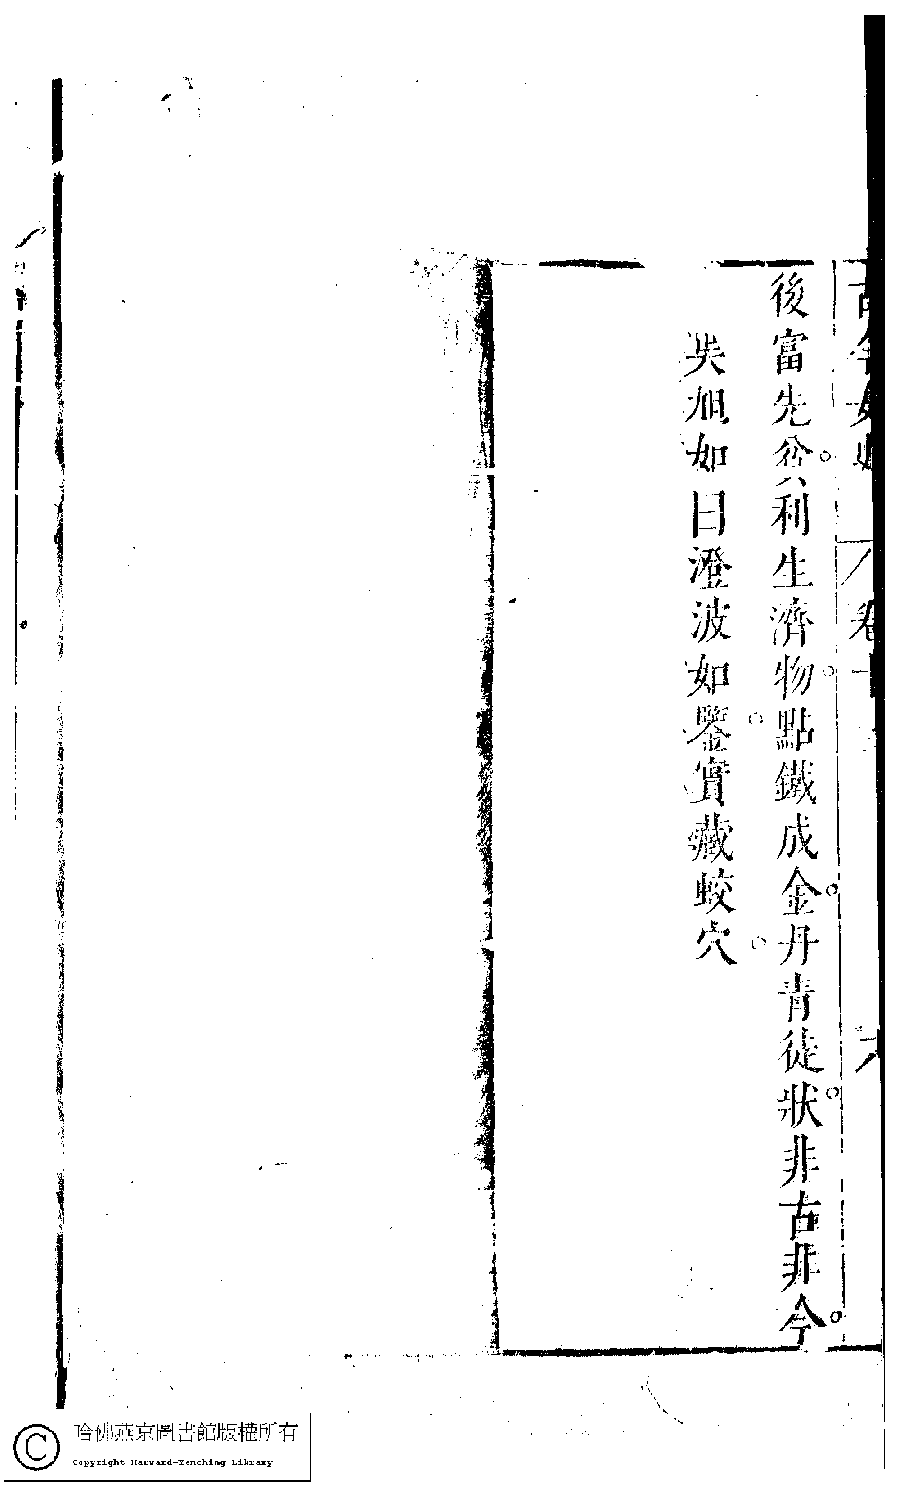 古今女史 卷十 六
後富先貧。利生濟物。點鐵成金。丹青徒狀。非古非今。
吳旭如曰澄波如鑒。實藏蛟穴。
哈佛燕京圖書館版權所有
Copyright Harvard-Yenching Library